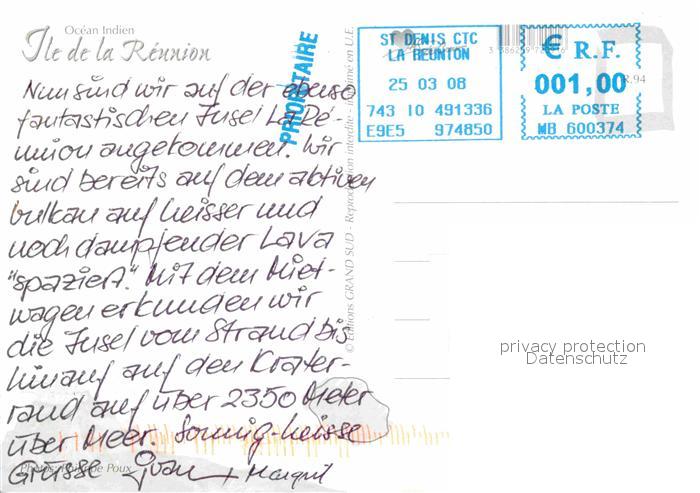 Océan Indien
Ile de la Réunion
Nun sind wir auf der ebenso
fantastischen Insel La Ré-
union angekommen. Wir
sind bereits auf dem aktiven
Vulkan auf heisser und
noch dampfender Lava
"spaziert". Mit dem Miet-
wagen erkunden wir
die Insel vom Strand bis
hinauf auf den Krater-
rand auf über 2350 Meter
über Meer. Sonnig-heisse
Grüsse Ivan + Margrit
Photos: Philippe Poux
PRIORITAIRE
© Editions GRAND SUD - Reproduction interdite - imprimé en U.E.
ST DENIS CTC
LA REUNION
25 03 08
743 IO 491336
E9E5 974850
€ R.F.
001,00
LA POSTE
MB 600374
R.94
privacy protection
Datenschutz